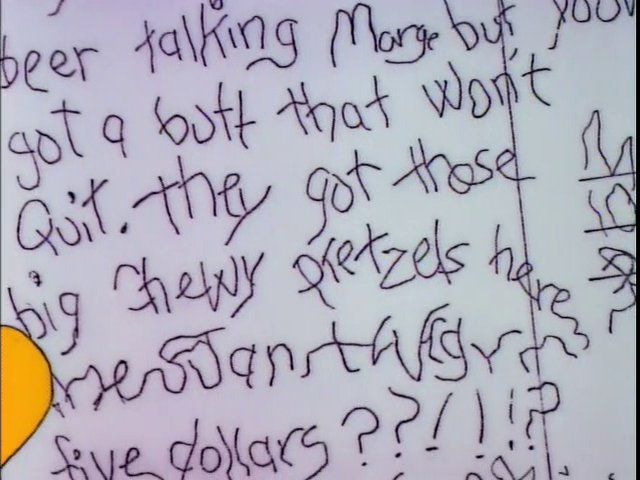 beer talking Marge but
got a butt that won't
Quit. they got those
big chewy pretzels here
five dollars??!!!?